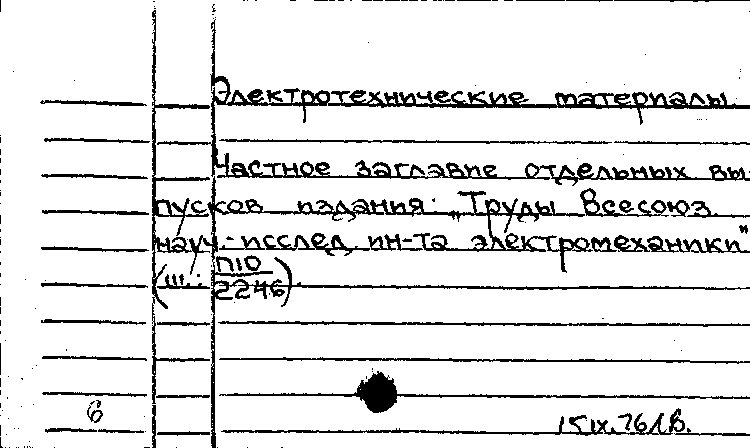 Электротехнические материалы
Частное заглавие отдельных вы-
пусков издания: „Труды Всесоюз.
науч.-исслед. ин-та электромеханики"
(ш.: П10
2246).
6
15.IX.76